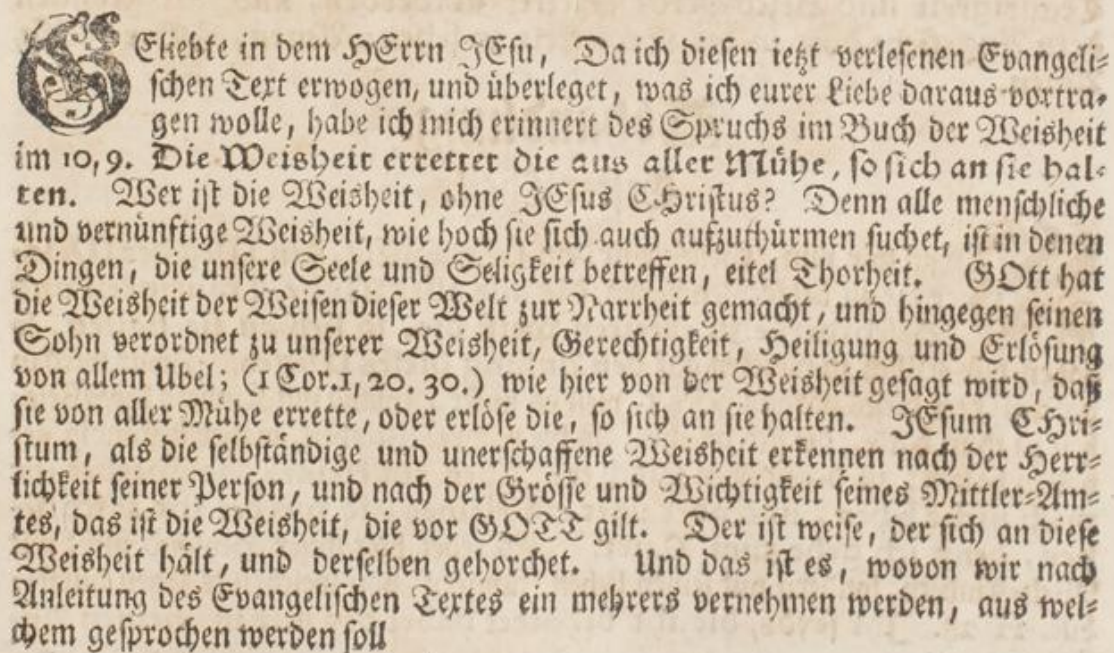 GEliebte in dem HErrn JEsu, Da ich diesen ietzt verlesenen Evangeli-
schen Text erwogen, und überleget, was ich eurer Liebe daraus vortra-
gen wolle, habe ich mich erinnert des Spruchs im Buch der Weisheit
im 10, 9. Die Weisheit errettet die aus aller Mühe, so sich an sie hal-
ten. Wer ist die Weisheit, ohne JEsus CHristus? Denn alle menschliche
und vernünftige Weisheit, wie hoch sie sich auch aufzuthürmen suchet, ist in denen
Dingen, die unsere Seele und Seligkeit betreffen, eitel Thorheit. GOtt hat
die Weisheit der Weisen dieser Welt zur Narrheit gemacht, und hingegen seinen
Sohn verordnet zu unserer Weisheit, Gerechtigkeit, Heiligung und Erlösung
von allem Ubel; (1 Cor. 1, 20. 30.) wie hier von der Weisheit gesagt wird, daß
sie von aller Mühe errette, oder erlöse die, so sich an sie halten. JEsum CHri-
stum, als die selbständige und unerschaffene Weisheit erkennen nach der Herr-
lichkeit seiner Person, und nach der Grösse und Wichtigkeit seines Mittler-Am-
tes, das ist die Weisheit, die vor GOTT gilt. Der ist weise, der sich an diese
Weisheit hält, und derselben gehorchet. Und das ist es, wovon wir nach
Anleitung des Evangelischen Textes ein mehrers vernehmen werden, aus wel-
chem gesprochen werden soll